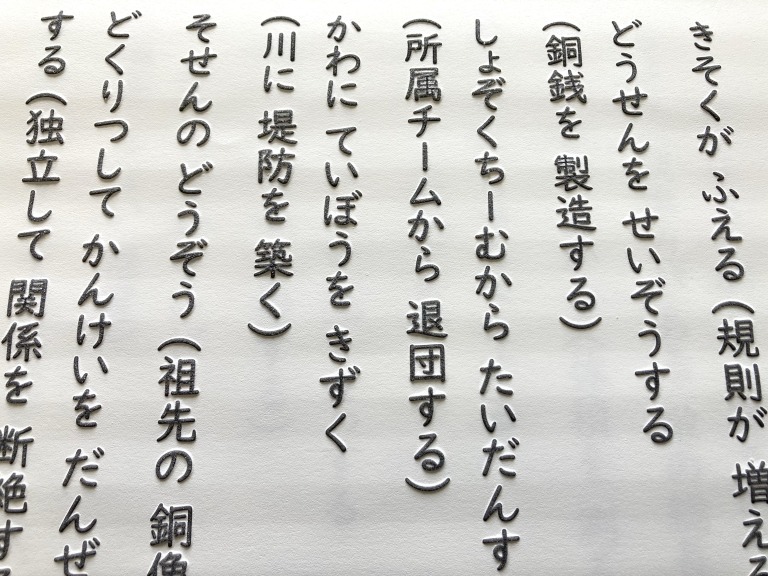 きそくが ふえる (規則が 増える
どうせんを せいぞうする
(銅銭を 製造する)
しょぞくちーむから たいだんす
(所属チームから 退団する)
かわに ていぼうを きずく
(川に 堤防を 築く)
そせんの どうぞう (祖先の 銅像
どくりつして かんけいを だんぜ
する (独立して 関係を 断絶する